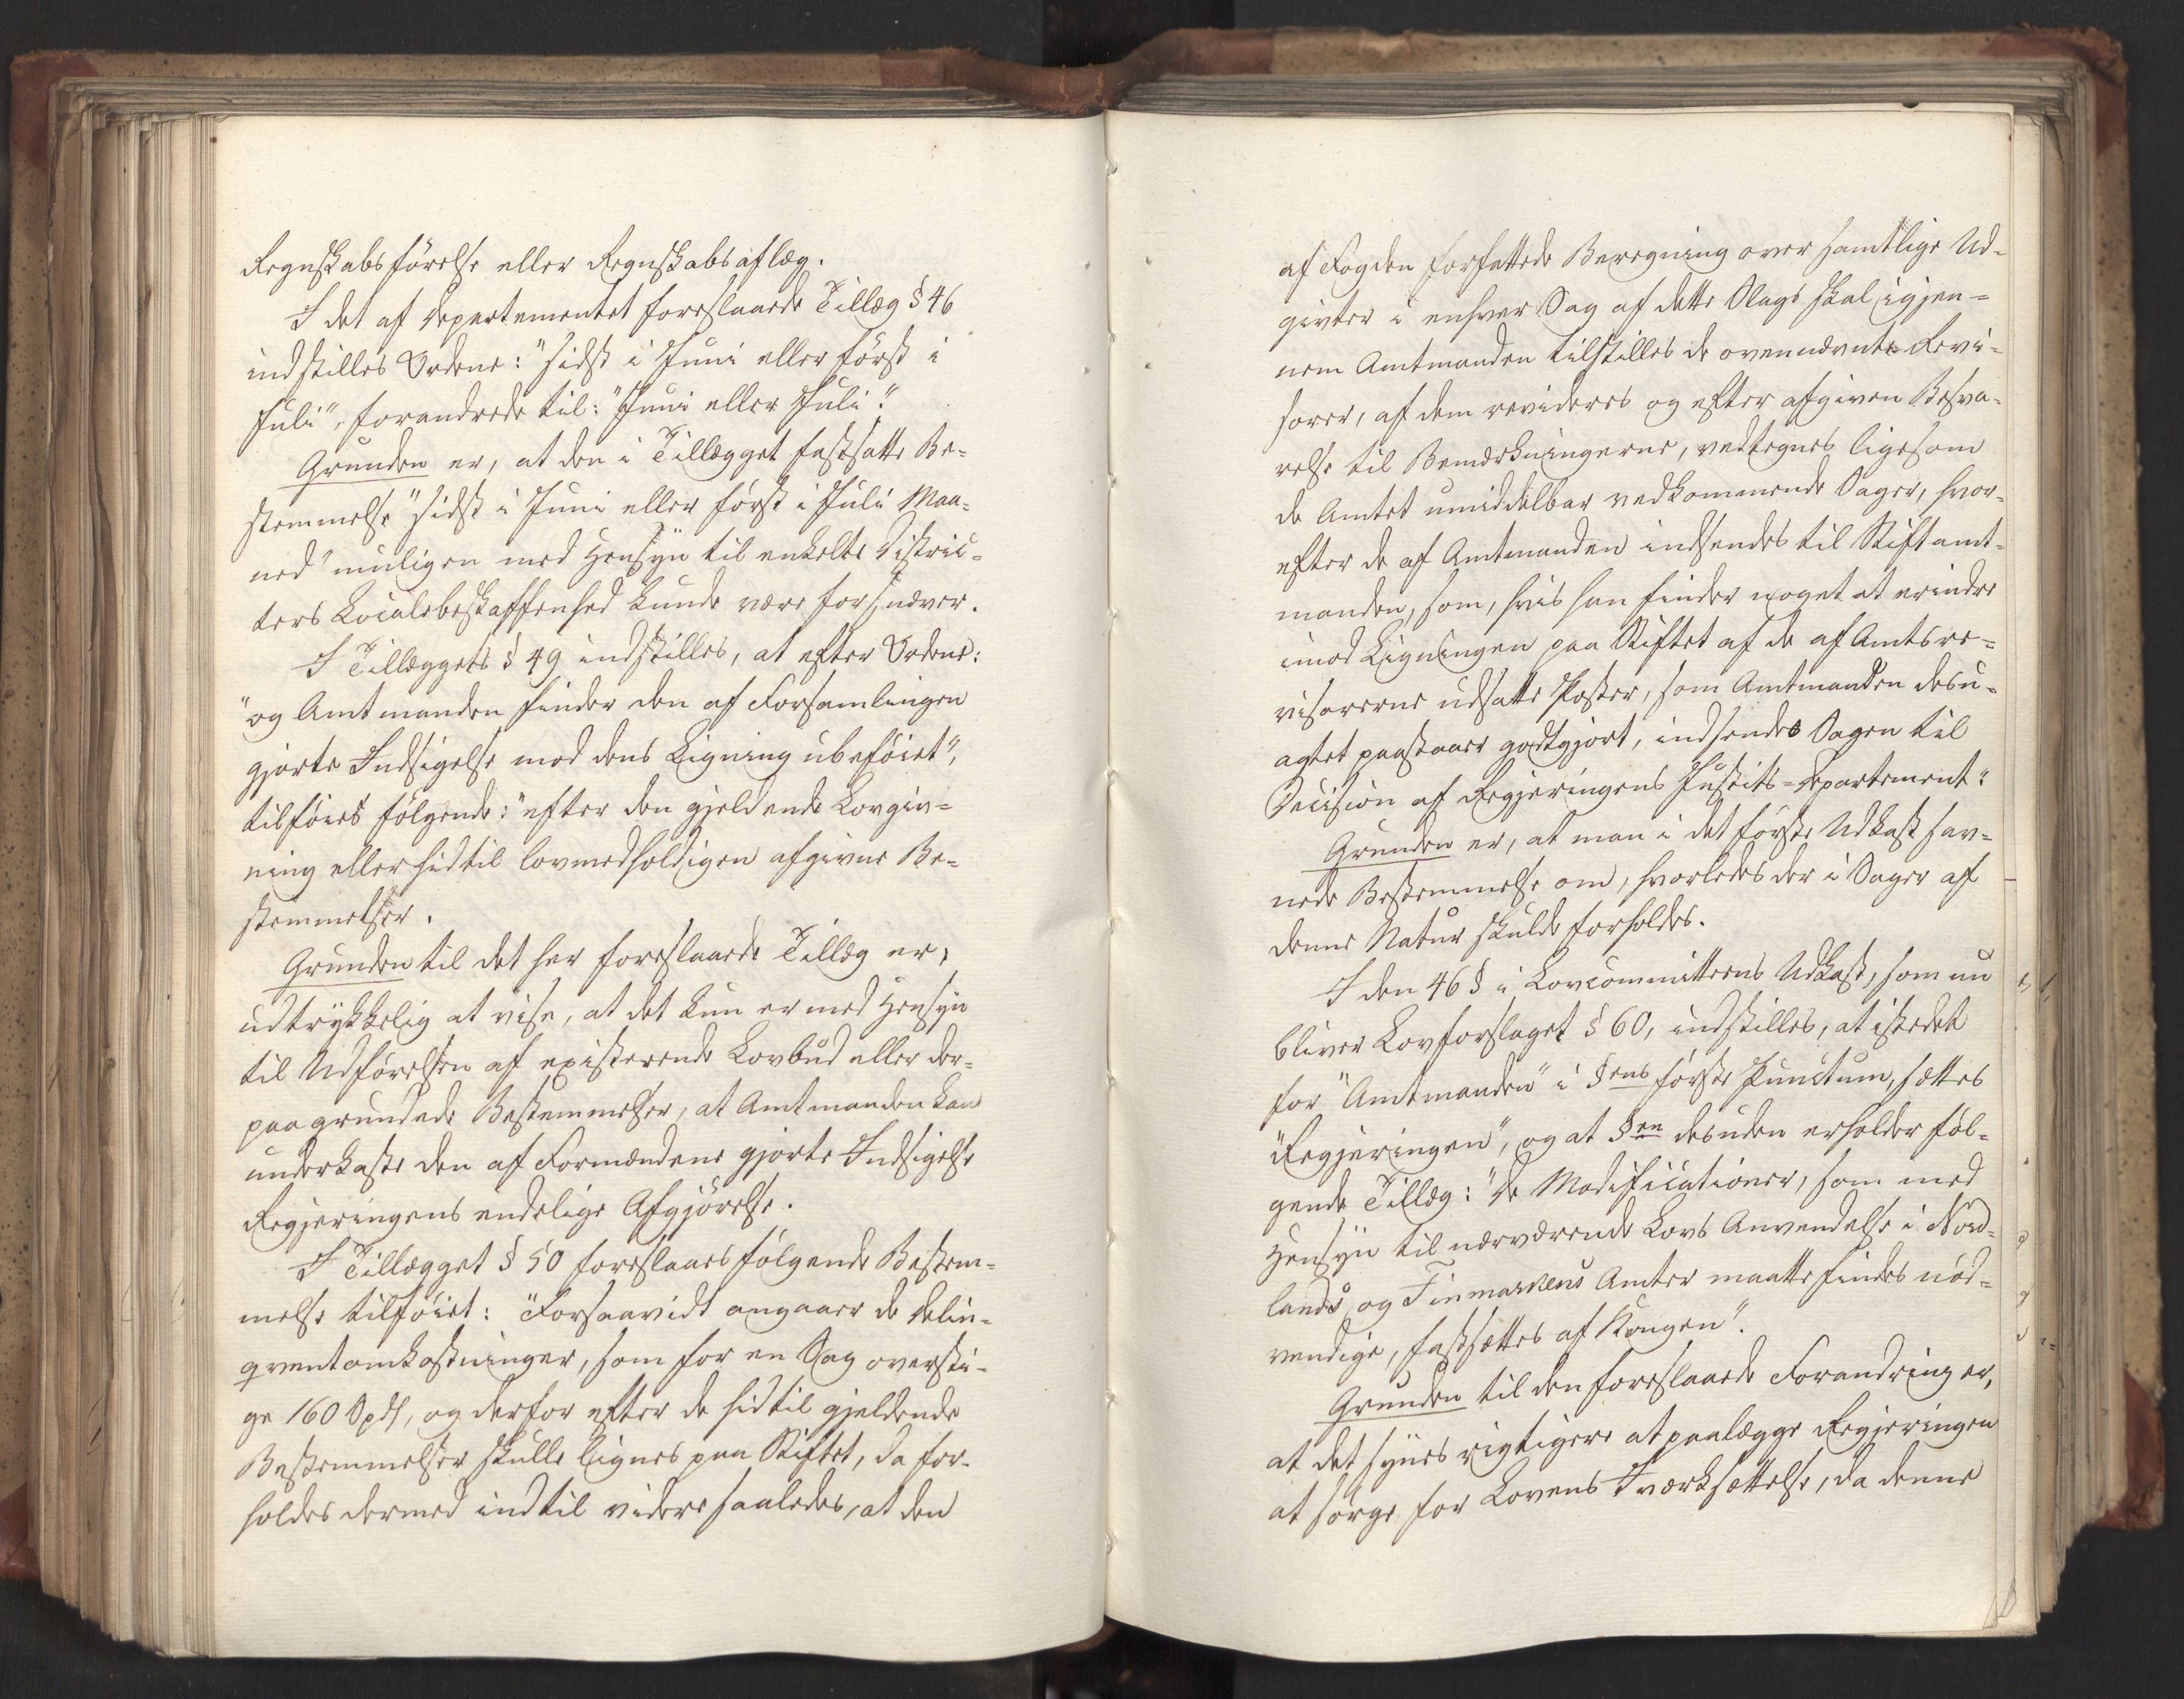 Regnskabsførelse eller Regnskabsaflæg.
I det af Departementet foreslaaede Tillæg § 46
indstilles Ordene: "sidst i Juni eller først i
Juli", forandrede til: "Juni eller Juli".
Grunden er, at den i Tillægget fastsatte Be-
stemmelse "sidst i Juni eller først i Juli Maa-
ned" muligen med Hensyn til enkelte Distric-
ters Localebeskaffenhed kunde være for snæver.
I Tillæggets § 49 indstilles, at efter Ordene:
"og Amtmanden finder den af Forsamlingen
gjorte Indsigelse mod dens Ligning ubeføiet",
tilføies følgende: "efter den gjeldende Lovgiv-
ning eller hidtil lovmedholdigen afgivne Be-
stemmelser.
Grunden til det her foreslaaede Tillæg er,
udtrykkelig at vise, at det kun er med Hensyn
til Udførelsen af existerende Lovbud eller der-
paa grundede Bestemmelser, at Amtmanden kan
underkaste den af Formændene gjorte Indsigelse
Regjeringens endelige Afgjørelse.
I Tillægget § 50 foreslaaes følgende Bestem-
melse tilføiet: "Forsaavidt angaaer de Delin-
qventomkostninger, som for en Sag oversti-
ge 160 Spdl, og derfor efter de hidtil gjeldende
Bestemmelser skulle lignes paa Stiftet, da for-
holdes dermed indtil videre saaledes, at den
af Fogden forfattede Beregning over samtlige Ud-
givter i enhver Sag af dette Slags skal igjen-
nem Amtmanden tilstilles de ovennævnte Revi-
sorer, af dem revideres og efter afgiven Besva-
relse til Bemærkningerne, vedtegnes ligesom
de Amtet umiddelbar vedkommende Sager, hvor-
efter de af Amtmanden indsendes til Stiftamt-
manden, som, hvis han finder noget at erindre
imod Ligningen paa Stiftet af de af Amtsre-
visorerne udsatte Poster, som Amtmanden desu-
agtet paastaaer godtgjort, indsendes Sagen til
Decision af Regjeringens Justits-Departement".
Grunden er, at man i det første Udkast sav-
nede Bestemmelse om, hvorledes der i Sager af
denne Natur skulde forholdes.
I den 46 § i Lovcommitteens Udkast, som nu
bliver Lovforslaget § 60, indstilles, at istedet
for "Amtmanden" i §ens første Punctum, sættes
"Regjeringen", og at §en desuden erholder føl-
gende Tillæg: "De Modificationer, som med
Hensyn til nærværende Lovs Anvendelse i Nord-
lands og Finmarkens Amter maatte findes nød-
vendige, fastsættes af Kongen".
Grunden til den foreslaaede Forandring er,
at det synes rigtigere at paalægge Regjeringen
at sørge for Lovens Iværksættelse, da denne